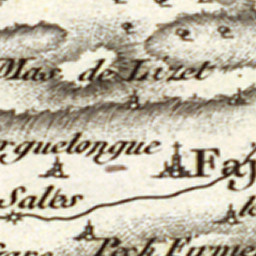 Mas de Lizet
rguelongue
Faj
Salles
Pech Firme